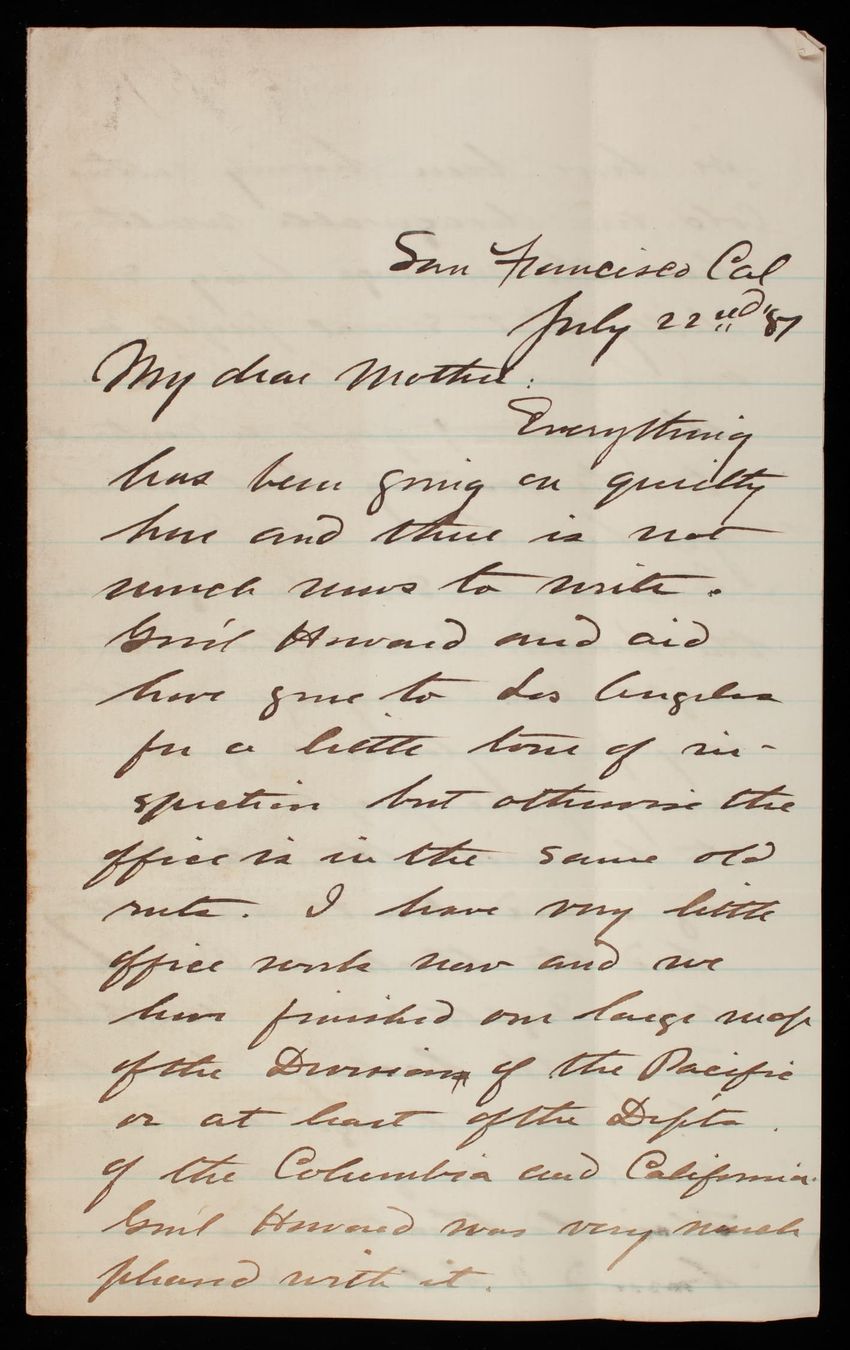 San Francisco Cal
July 22nd '87
My dear Mother:
Everything
has been going on quietly
here and there is not
much news to write.
Gen'l Howard and aid
have gone to Los Angeles
for a little tour of in-
spection but otherwise the
office is in the same old
ruts. I have very little
office work now and we
have finished our large map
of the Division of the Pacific
or at least of the Depts
of the Columbia and California.
Gen'l Howard was very much
pleased with it.